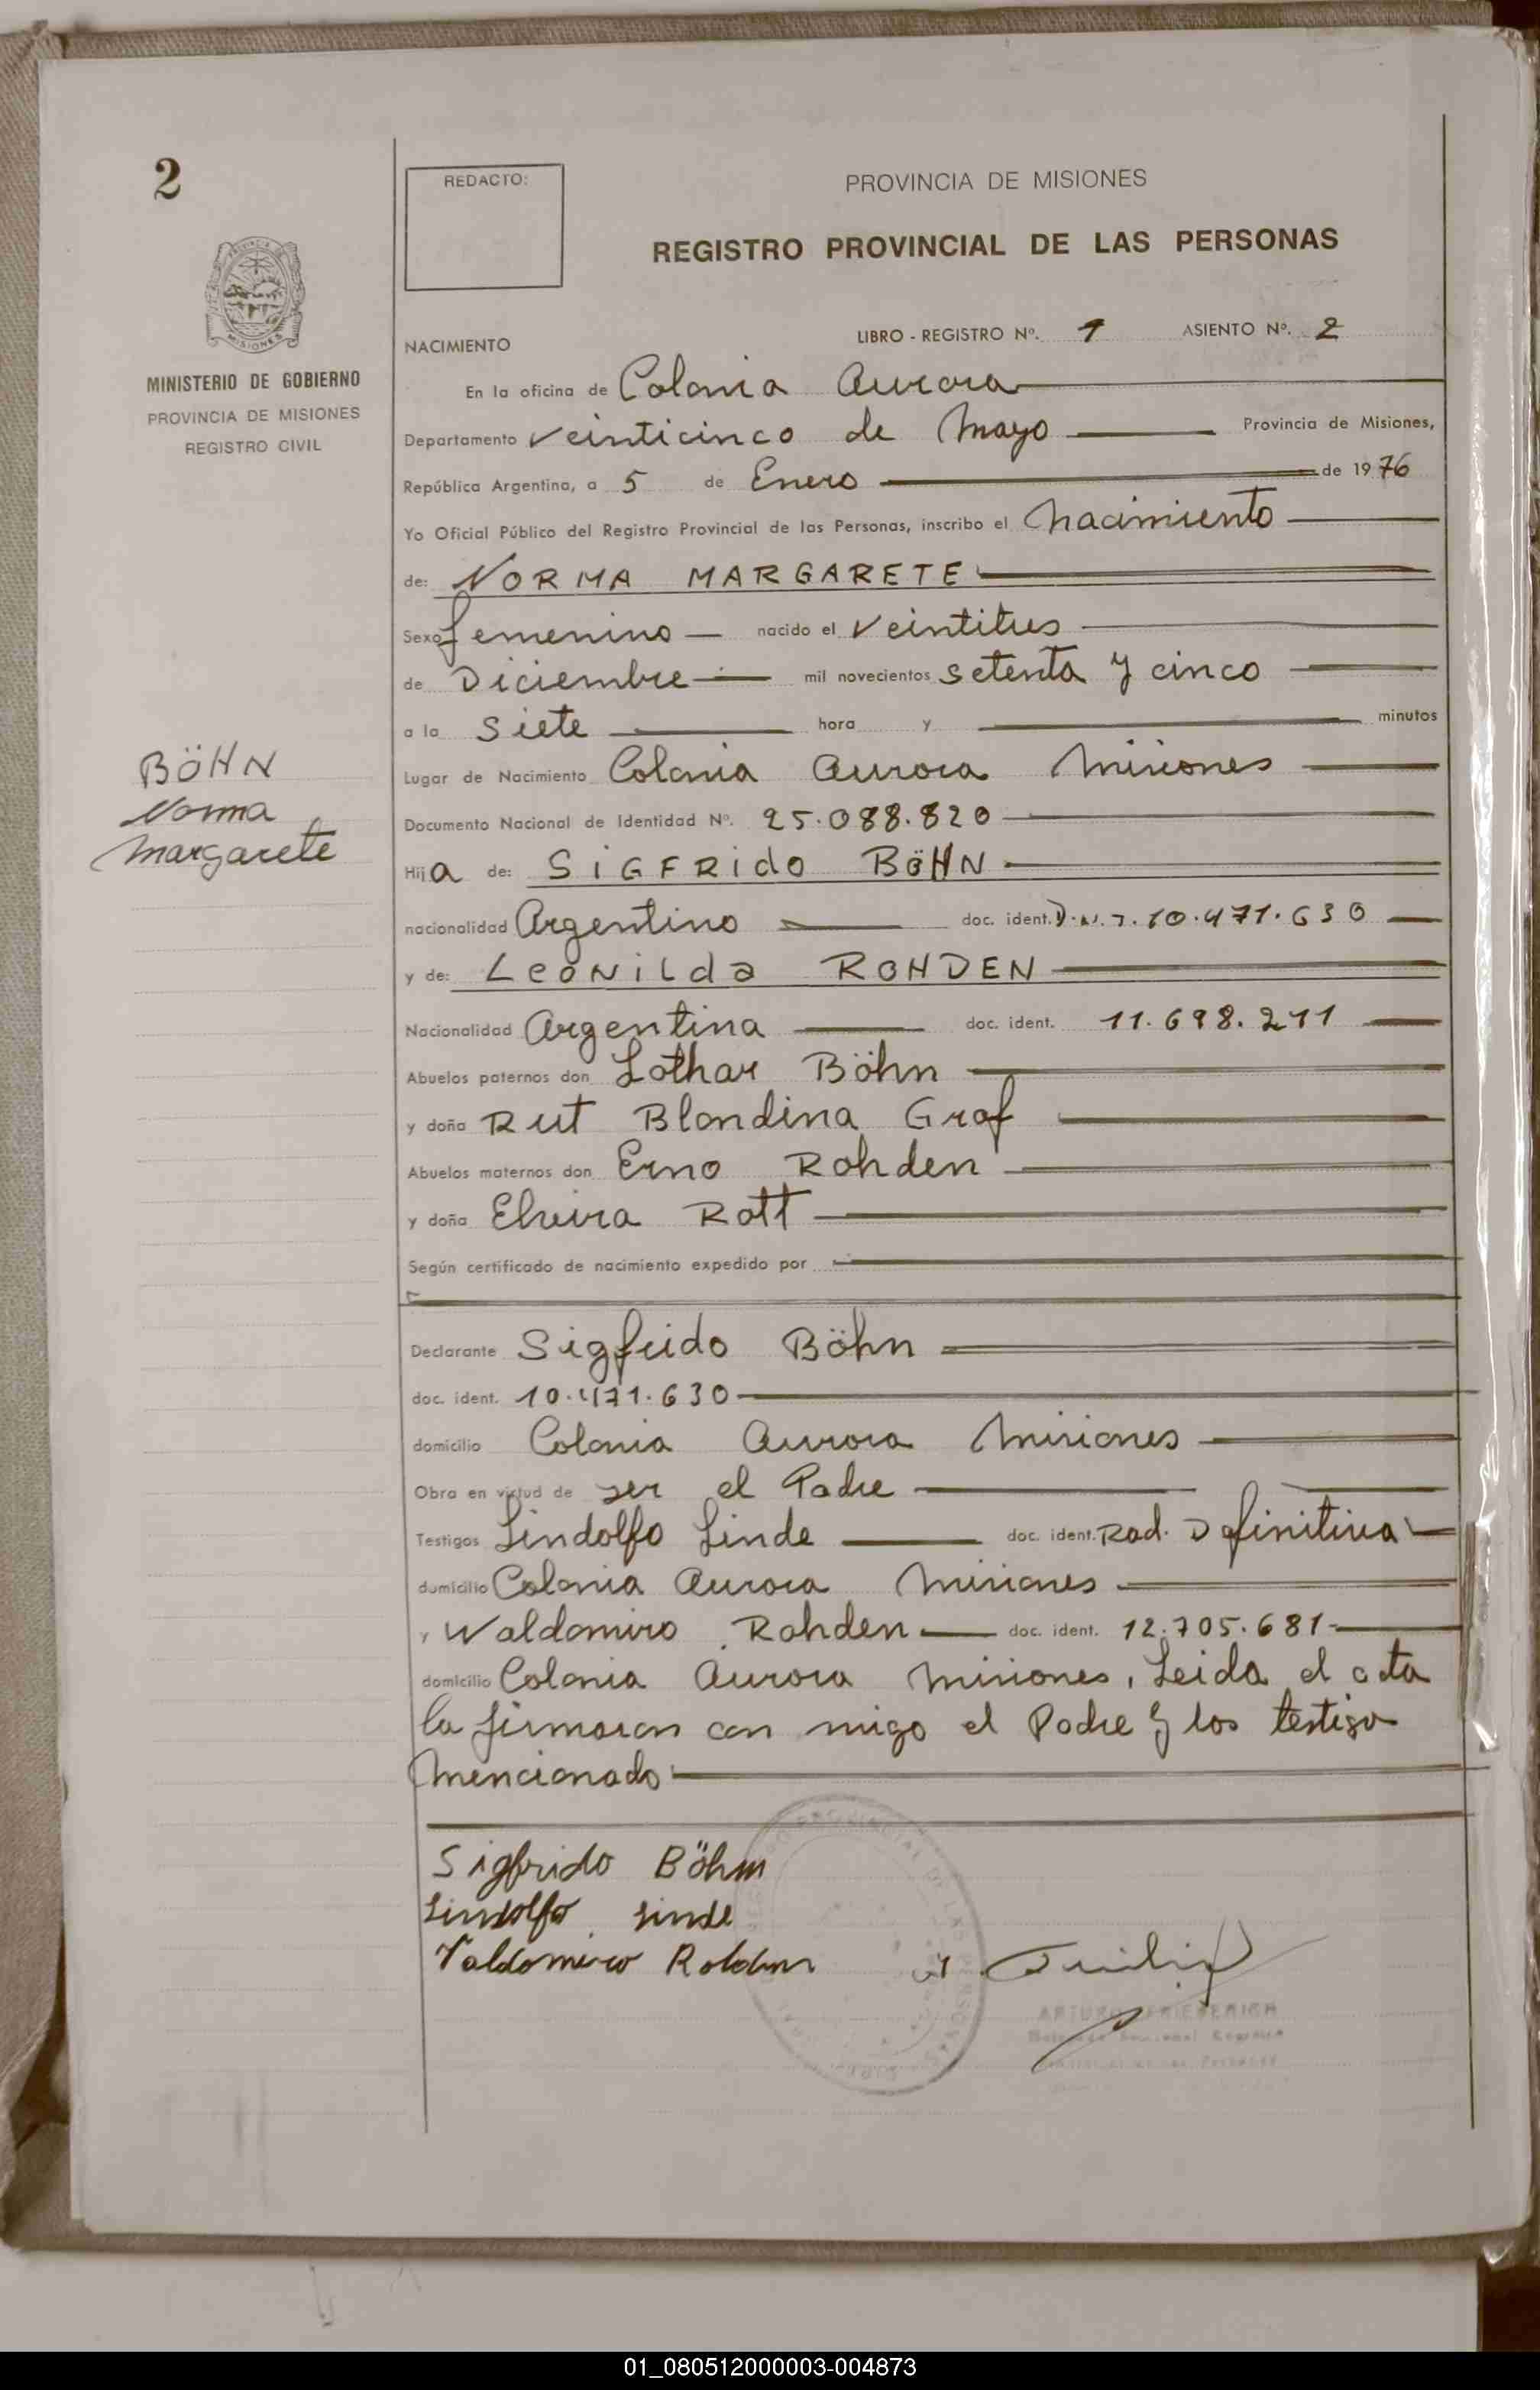 2
REDACTO:
PROVINCIA DE MISIONES
REGISTRO PROVINCIAL DE LAS PERSONAS
MISIONES
MINISTERIO DE GOBIERNO
PROVINCIA DE MISIONES
REGISTRO CIVIL
NACIMIENTO
LIBRO - REGISTRO Nº. 1 ASIENTO Nº. 2
En la oficina de Colonia Aurora
Departamento Veinticinco de Mayo Provincia de Misiones,
República Argentina, a 5 de Enero de 1976
Yo Oficial Público del Registro Provincial de las Personas, inscribo el Nacimiento
de: NORMA MARGARETE
Sexo femenino nacido el Veintitres
de Diciembre mil novecientos setenta y cinco
a la siete hora y minutos
BÖHN
Norma
Margarete
Lugar de Nacimiento Colonia Aurora Misiones
Documento Nacional de Identidad Nº. 25.088.820
Hija de: SiGFRido BöHN
nacionalidad Argentino doc. ident. D.N.I. 10.471.630
y de: LeoNiLda ROHDEN
Nacionalidad Argentina doc. ident. 11.698.211
Abuelos paternos don Lothar Böhn
y doña Rut Blondina Graf
Abuelos maternos don Erno Rohden
y doña Elveira Rott
Según certificado de nacimiento expedido por
Declarante Sigfrido Böhn
doc. ident. 10.471.630
domicilio Colonia Aurora Misiones
Obra en virtud de ser el Padre
Testigos Lindolfo Linde doc. ident. Rad. Definitiva
domicilio Colonia Aurora Misiones
y Waldomiro Rohden doc. ident. 12.705.681
domicilio Colonia Aurora Misiones, Leida el acta
la firmaron con migo el Padre y los testigo
Mencionado
Sigfrido Böhn
Lindolfo Linde
Valdomiro Rohden
ARTURO FRIEDERICH
01_080512000003-004873